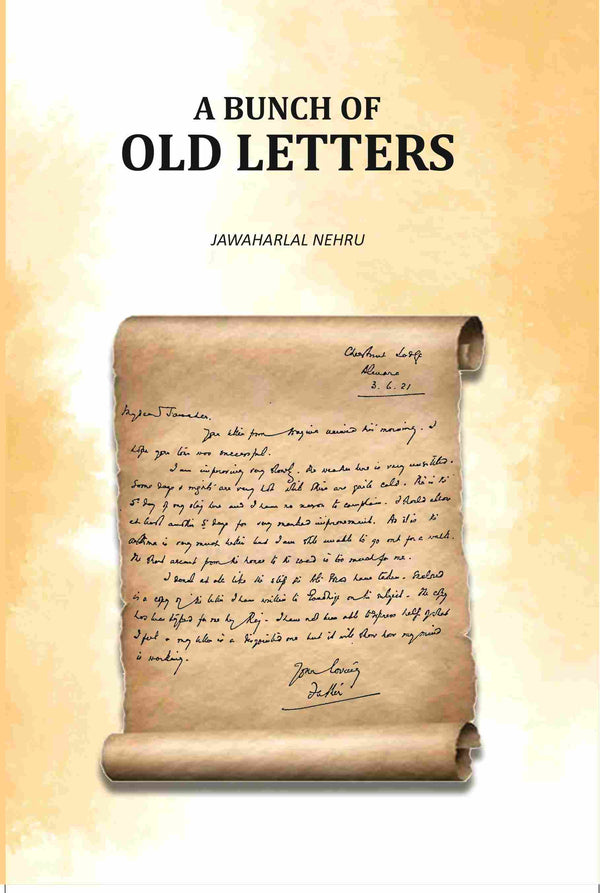 A BUNCH OF
OLD LETTERS
JAWAHARLAL NEHRU
Chestnut Lodge
Almora
3.6.21
My dear Jawahar,
Your letter from received this morning. I
hope you was successful.
I am improving very slowly. The weather here is very unsettled.
Some days & nights are very hot while others are quite cold. This is the
5th day of my stay here and I have no reason to complain. I should allow
at least another 5 days for very marked improvement. As it is the
asthma is very much better but I am still unable to go out for a walk.
The short ascent from the house to the road is too much for me.
I do not at all like the step the Ali Bros have taken. Enclosed
is a copy of the letter I have written to Gandhiji on the subject. The copy
has been typed for me by Raj. I have not been able to express half of what
I feel & my letter is a disjointed one but it will show how my mind
is working.
Your loving
Father